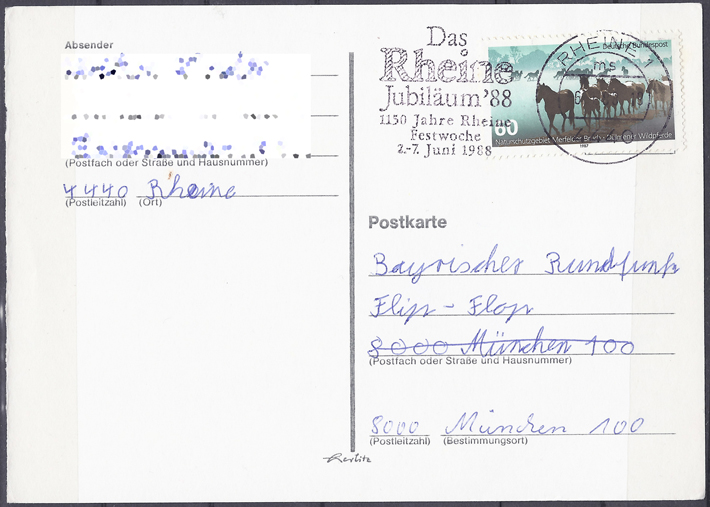 Absender
(Postfach oder Straße und Hausnummer)
4440 Rheine
(Postleitzahl) (Ort)
Das
Rheine
Jubiläum '88
1150 Jahre Rheine
Festwoche
2.-7. Juni 1988
RHEINE 1
ms
Deutsche Bundespost
60
Naturschutzgebiet Merfelder Bruch · Dülmener Wildpferde
1987
Postkarte
Bayrischer Rundfunk
Flip - Flop
8000 München 100
(Postfach oder Straße und Hausnummer)
8000 München 100
(Postleitzahl) (Bestimmungsort)
Herlitz